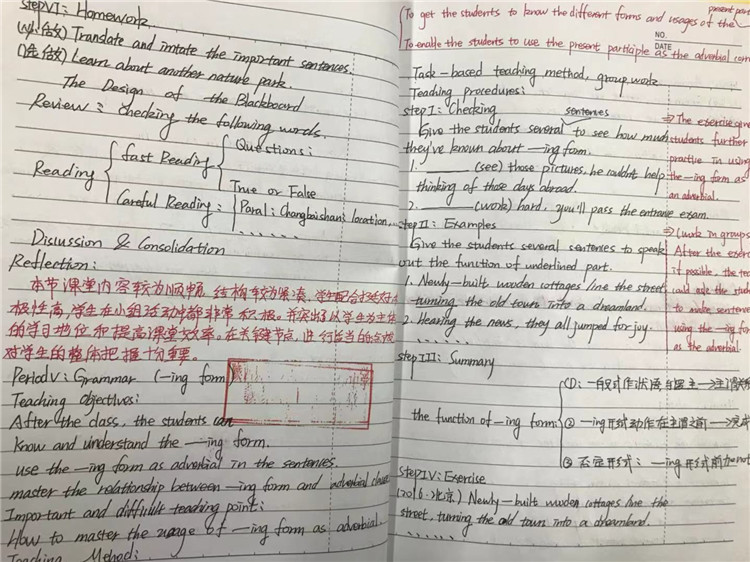 Step VI: Homework.
(必做) Translate and imtate the important sentences.
(选做) Learn about another nature park.
The Design of the Blackboard
Review: checking the following words.
Reading
fast Reading
Questions:
True or False
Careful Reading:
Para1: Changbaishan: location,
Disussion & Consolidation
Reflection:
本节课堂内容较为顺畅, 结构较为紧凑, 学生配合
极性高, 学生在小组活动中都非常积极。并突出以学生为主体
的学习地位和提高课堂效率。在关键节点, 进行适当的点拨
对学生的整体把握十分重要。
Period V: Grammar (-ing form)
Teaching objectives:
After the class, the students can
know and understand the -ing form.
use the -ing form as adverbial in the sentences.
master the relationship between -ing form and adverbial clause
Important and difficult teaching point:
How to master the usage of -ing form as adverbial.
Teaching Method:
present part
To get the students to know the different forms and usages of the
NO.
DATE
To enable the students to use the present participle as the adverbial corr
Task-based teaching method, group work
Teaching procedures:
step I: Checking
sentences
Give the students several to see how much
they've known about -ing form.
1. ______ (see) those pictures, he couldn't help
thinking of those days abroad.
2. ______ (work) hard, you'll pass the entrance exam.
⇒ The exercise give
students further
practise in using
the -ing form as
an adverbial.
step II: Examples
Give the students several sentences to speak
out the function of underlined part.
1. Newly-built wooden cottages line the street
turning the old town into a dreamland.
2. Hearing the news, they all jumped for joy.
......
⇒ (work in groups
After the exerc
if possible, the tea
could ask the stude
to make sentence
using the -ing for
as the adverbial
step III: Summary
the function of -ing form:
①: 一般式作状语与
② -ing形式动作在主谓之前 → 完成
③ 否定形式: -ing形式前加not
step IV: Exercise
(2016·北京) Newly-built wooden cottages line the
street, turning the old town into a dreamland.
......